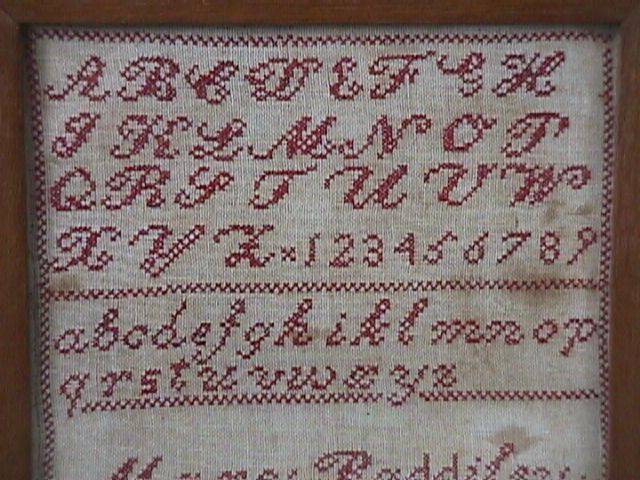 A B C D E F G H
I K L M N O P
Q R S T U V W
X Y Z × 1 2 3 4 5 6 7 8 9
a b c d e f g h i k l m n o p
q r s t u v w x y z